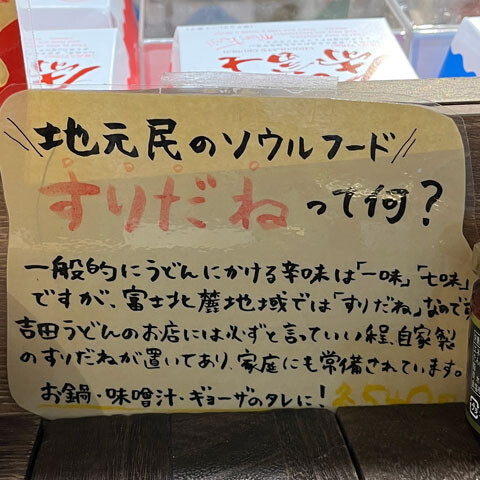 \\地元民のソウルフード//
すりだねって何?
一般的にうどんにかける辛味は「一味」「七味」
ですが、富士北麓地域では「すりだね」なのです
吉田うどんのお店には必ずと言っていい程、自家製
のすりだねが置いてあり、家庭にも常備されています。
お鍋・味噌汁・ギョーザのタレに! 各540円